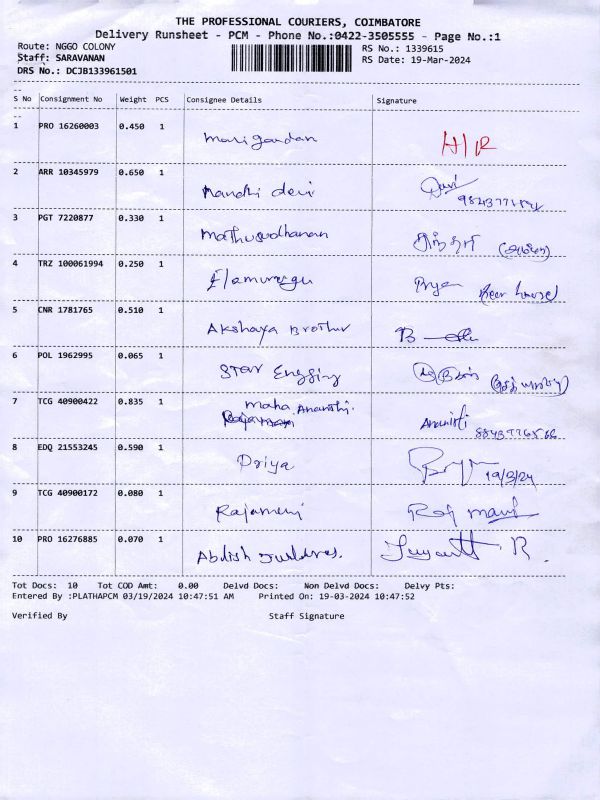 THE PROFESSIONAL COURIERS, COIMBATORE
Delivery Runsheet - PCM - Phone No.:0422-3505555 - Page No.:1
Route: NGGO COLONY
Staff: SARAVANAN
DRS No.: DCJB133961501
RS No.: 1339615
RS Date: 19-Mar-2024
S No Consignment No Weight PCS Consignee Details Signature
1 PRO 16260003 0.450 1 H/R
2 ARR 10345979 0.650 1 Nandhi devi
3 PGT 7220877 0.330 1 Mathusudhanan
4 TRZ 100061994 0.250 1 Elamurugu Priya
5 CNR 1781765 0.510 1 Akshaya Brother
6 POL 1962995 0.065 1 Star
7 TCG 40900422 0.835 1 Maha
8 EDQ 21553245 0.590 1 Priya 19/3/24
9 TCG 40900172 0.080 1 Rajamani Raj mani
10 PRO 16276885 0.070 1 R.
Tot Docs: 10 Tot COD Amt: 0.00 Delvd Docs: Non Delvd Docs: Delvy Pts:
Entered By :PLATHAPCM 03/19/2024 10:47:51 AM Printed On: 19-03-2024 10:47:52
Verified By Staff Signature